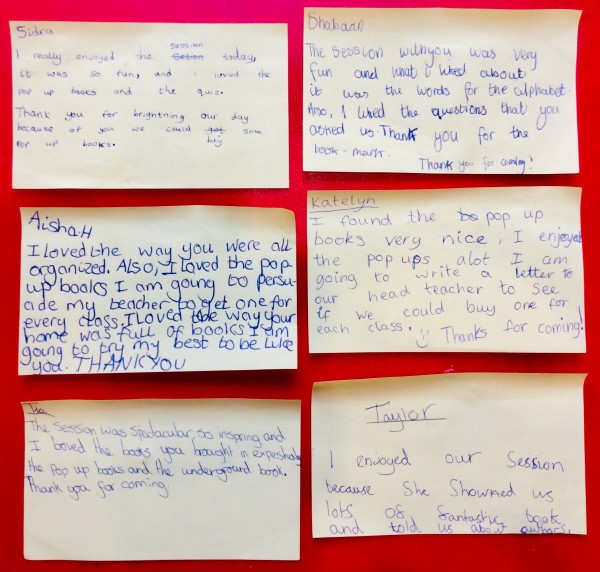 Sidra
I really enjoyed the session today,
it was so fun, and i loved the
pop up books and the quiz.
Thank you for brightning our day
because of you we could buy som
pop up books.
Shabaan
The session with you was very
fun and what i liked about
it was the words for the alphabet.
Also, I liked the questions that you
asked us. Thank you for the
book-mark.
Thank you for coming!
Aisha.H
I loved the way you were all
organized. Also, I loved the pop-
up books I am going to persu-
ade my teacher to get one for
every class. I loved the way your
home was full of books I am
going to try my best to be like
you. THANK YOU
Katelyn
I found the pop up
books very nice, I enjoyed
the pop ups alot I am
going to write a letter to
our head teacher to see
if we could buy one for
each class. Thanks for coming!
The session was spectacular, so inspring and
I loved the books you brought in expeshaly
the pop up books and the underground book.
Thank you for coming.
Taylor
I enyoyed our Session
because She Showned us
lots of fantastic book
and told us about authors.